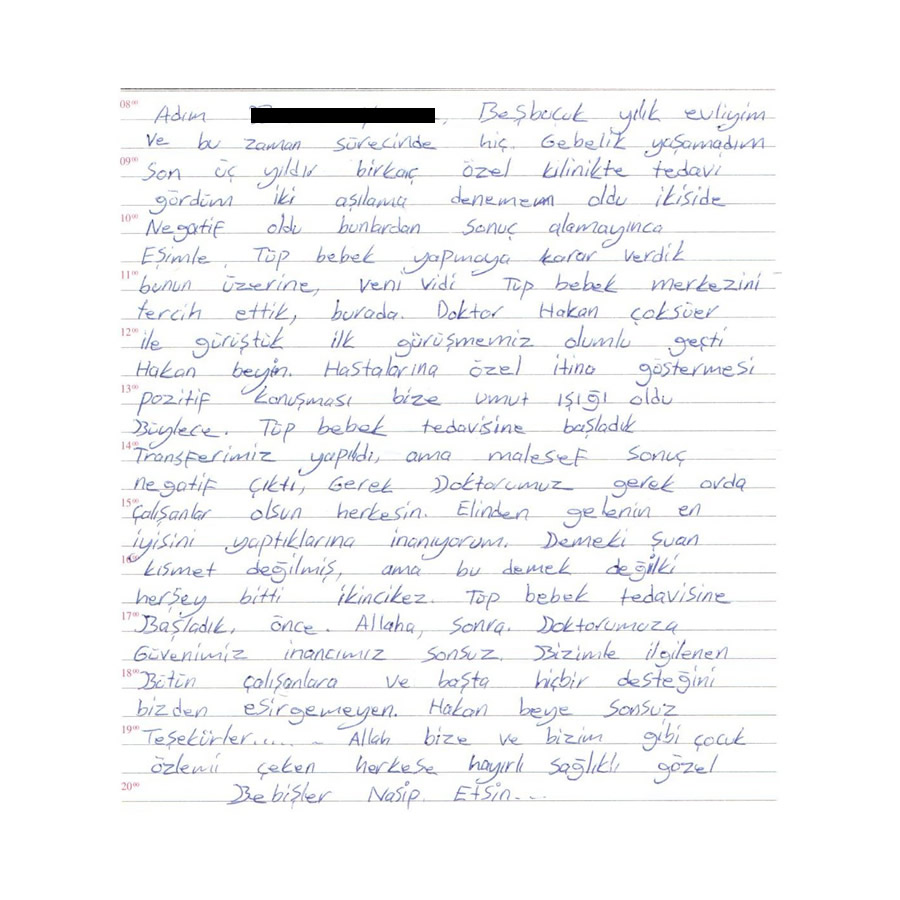 08⁰⁰ Adım , Beşbuçuk yılık evliyim
Ve bu zaman sürecinde hiç. Gebelik yaşamadım
09⁰⁰ Son üç yıldır birkaç özel kilinikte tedavi
gördüm iki aşılama denemem oldu ikiside
10⁰⁰ Negatif oldu bunlardan sonuç alamayınca
Eşimle Tüp bebek yapmaya karar verdik
11⁰⁰ bunun üzerine, veni vidi Tüp bebek merkezini
tercih ettik, burada. Doktor Hakan çoksüer
12⁰⁰ ile görüştük ilk görüşmemiz olumlu geçti
Hakan beyin. Hastalarına özel itina göstermesi
13⁰⁰ pozitif konuşması bize umut ışığı oldu
Böylece. Tüp bebek tedavisine başladık
14⁰⁰ Transferimiz yapıldı, ama malesef sonuç
negatif çıktı, Gerek Doktorumuz gerek orda
15⁰⁰ çalışanlar olsun herkesin. Elinden gelenin en
iyisini yaptıklarına inanıyorum. Demeki şuan
16⁰⁰ kısmet değilmiş, ama bu demek değilki
herşey bitti ikincikez. Tüp bebek tedavisine
17⁰⁰ Başladık, önce. Allaha, sonra. Doktorumuza
Güvenimiz inancımız sonsuz. Bizimle ilgilenen
18⁰⁰ Bütün çalışanlara ve başta hiçbir desteğini
bizden esirgemeyen. Hakan beye sonsuz
19⁰⁰ Teşekürler...... Allah bize ve bizim gibi çocuk
özlemi çeken herkese hayırlı sağlıklı güzel
20⁰⁰ Bebişler Nasip. Etsin...